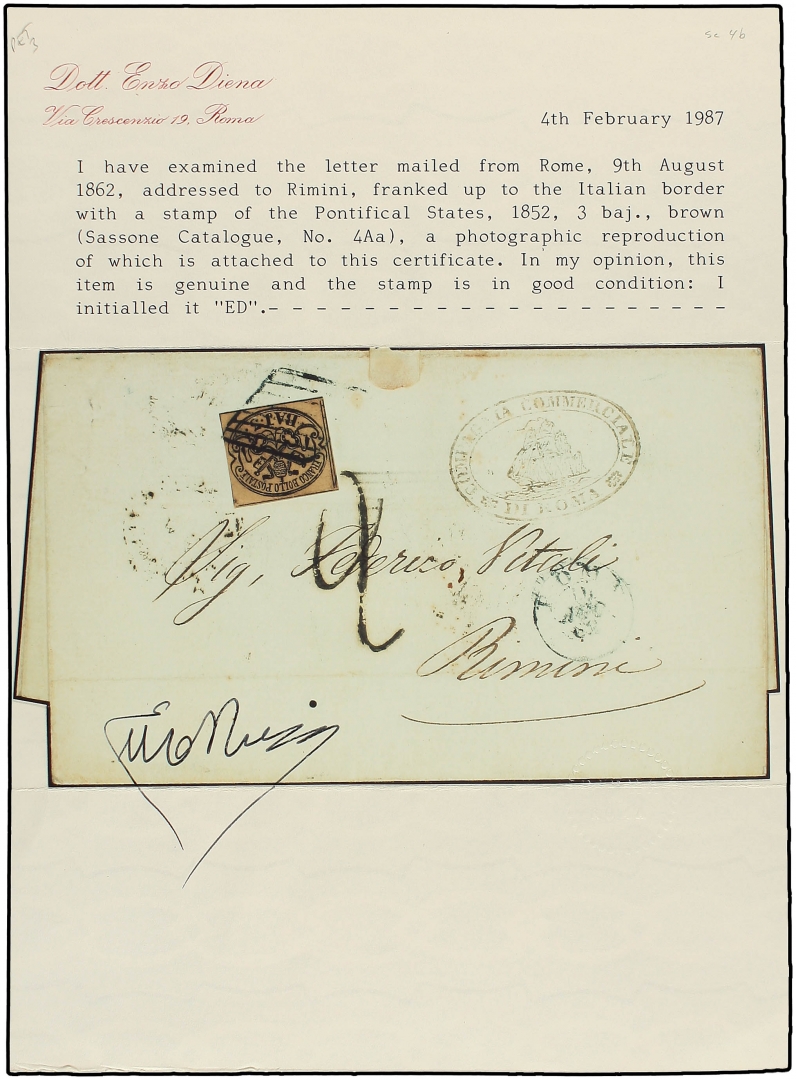 Sc 4b
Dott. Enzo Diena
Via Crescenzio 19, Roma
4th February 1987
I have examined the letter mailed from Rome, 9th August
1862, addressed to Rimini, franked up to the Italian border
with a stamp of the Pontifical States, 1852, 3 baj., brown
(Sassone Catalogue, No. 4Aa), a photographic reproduction
of which is attached to this certificate. In my opinion, this
item is genuine and the stamp is in good condition: I
initialled it "ED".- - - - - - - - - - - - - - - - - - - -
COMMERCIALE
DI ROMA
BAJ. 3
FRANCO BOLLO POSTALE
2
Sig, Vitali
Rimini